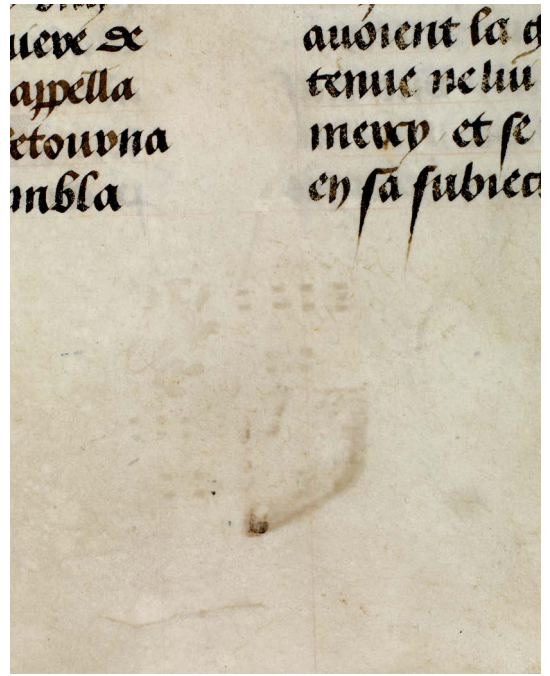 ueve de
appella
etourna
mbla
avoient la
tenue ne lui
mercy et se
en sa subiect